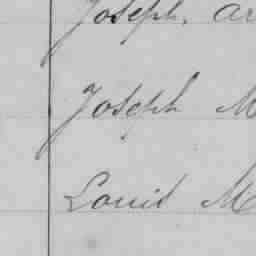 Joseph, Ar
Joseph M
Louis M